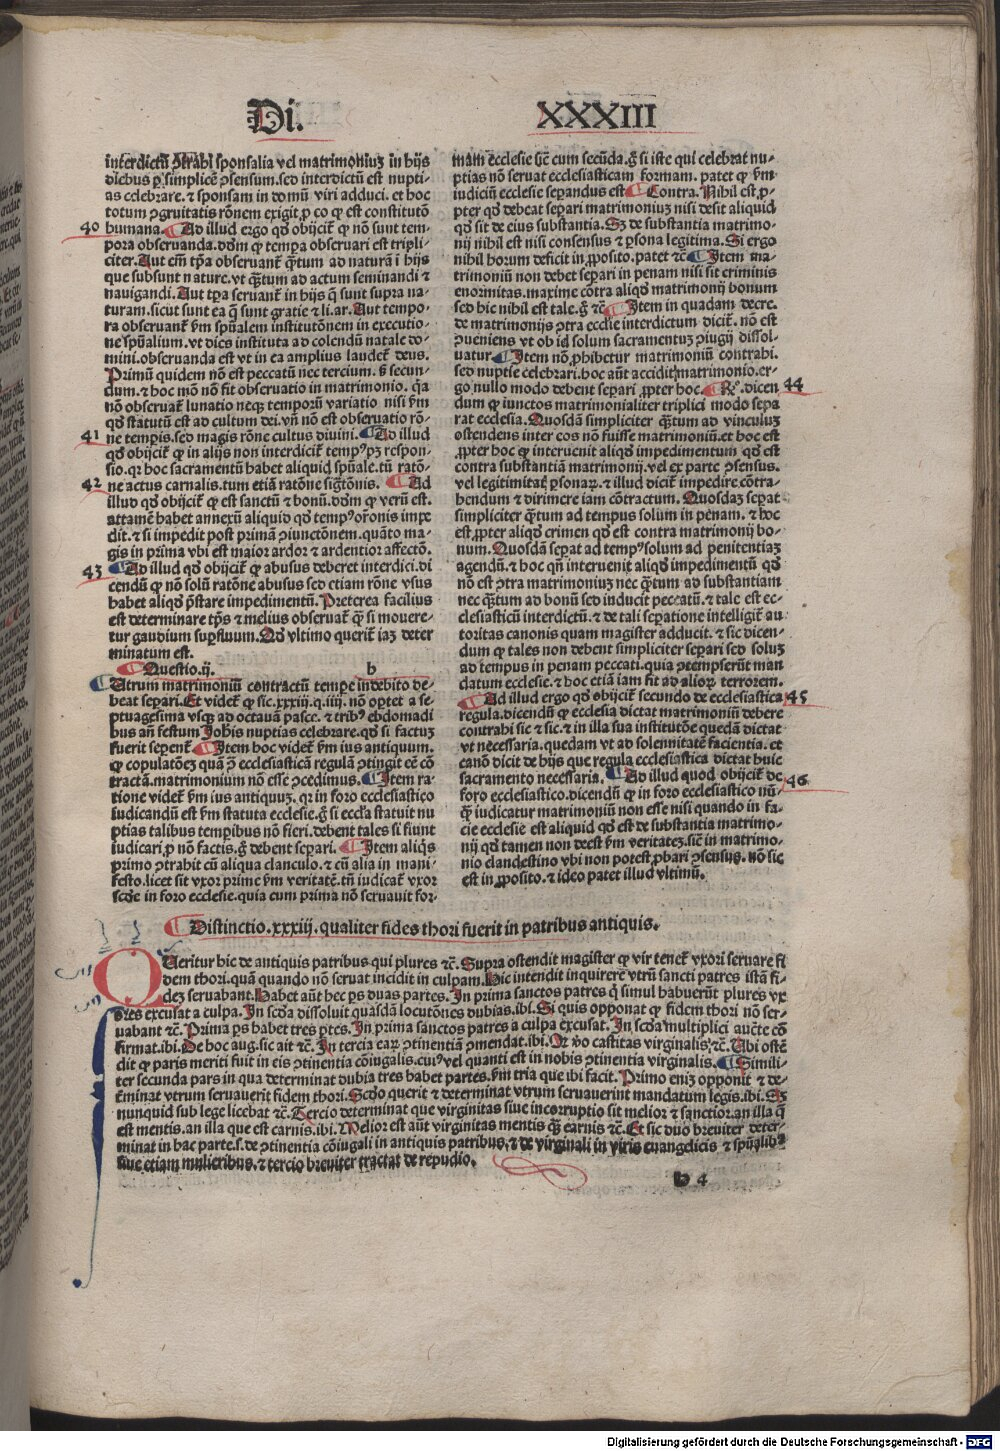 Di.
XXXIII
interdictũ ↄ̃trahi sponsalia vel matrimoniuz in hijs
diebus ꝑ simplicẽ ↄ̃sensum. sed interdictũ est nupti-
as celebrare. ⁊ sponsam in domũ viri adduci. et hoc
totum ↄ̃gruitatis rõnem exigit, ꝓ eo ꝙ est constitutõ
40 humana. Ad illud ergo qđ obijcit̃ ꝙ nõ sunt tem-
pora obseruanda. dđm ꝙ tempa obseruari est tripli-
citer. Aut em̃ tꝑa obseruant̃ q̃tum ad naturã ĩ hijs
que subsunt nature. vt q̃tum ad actum seminandi ⁊
nauigandi. Aut tꝑa seruant̃ in hijs q̃ sunt supra na-
turam. sicut sunt ea q̃ sunt gratie ⁊ li. ar. Aut tempo-
ra obseruant̃ ẜm spũalem institutõnem in executio-
ne spũalium. vt dies instituta ad colendũ natale do-
mini. obseruanda est vt in ea amplius laudet̃ deus.
Primũ quidem nõ est peccatũ nec tercium. ẜ secun-
dum. ⁊ hoc mõ nõ fit obseruatio in matrimonio. q̃a
nõ obseruat̃ lunatio neqꝫ temporũ variatio nisi ẜm
qđ statutũ est ad cultum dei. vñ nõ est obseruatio rõ-
41 ne tempis. sed magis rõne cultus diuini. Ad illud
qđ obijcit̃ ꝙ in alijs non interdicit̃ tempꝰ pꝫ respon-
sio. qꝛ hoc sacramentũ habet aliquid spũale. tũ ratõ-
42 ne actus carnalis. tum etiã ratõne sig̃tionis. Ad
illud qđ obijcit̃ ꝙ est sanctũ ⁊ bonũ. dđm ꝙ verũ est.
attamẽ habet annexũ aliquid qđ tempꝰ oĩonis impe
dit. ⁊ si impedit post primã ↄ̃iunctõnem. quãto ma-
gis in prima vbi est maior ardor ⁊ ardentior affectõ.
43 Ad illud qđ obijcit̃ ꝙ abusus deberet interdici. di
cendũ ꝙ nõ solũ ratõne abusus sed etiam rõne vsus
habet aliqđ p̃stare impedimentũ. Preterea facilius
est determinare tp̃s ⁊ melius obseruat̃ q̃ si mouere-
tur gaudium suꝑfluum. Ad vltimo querit̃ iaz deter
minatum est.
Questio. ij. b
Vtrum matrimoniũ contractũ tempe indebito de-
beat separi. Et videt̃ ꝙ sic. xxxiij. q. iiij. nõ optet a se-
ptuagesima vsqꝫ ad octauã pasce. ⁊ tribꝰ ebdomadi
bus añ festum Johis nuptias celebrare. qđ si factuz
fuerit sepent̃. Item hoc videt̃ ẜm ius antiquum.
ꝙ copulatõez quã p̃ ecclesiasticã regulã ↄ̃tingit eẽ cõ
tractã. matrimonium nõ esse p̃cedimus. Item ra-
tione videt̃ ẜm ius antiquuz. qꝛ in foro ecclesiastico
iudicandũ est ẜm statuta ecclesie. g̃ si ecclĩa statuit nu
ptias talibus tempibus nõ fieri. debent tales si fiunt
iudicari, ꝓ nõ factis. g̃ debent separi. Item aliq̃s
primo ↄ̃trahit cũ aliqua clanculo. ⁊ cũ alia in mani-
festo. licet sit vxor prime ẜm veritatẽ. tñ iudicat̃ vxor
scđe in foro ecclesie. quia cum prima nõ seruauit for-
mam ecclesie sic̃ cum secũda. g̃ si iste qui celebrat nu-
ptias nõ seruat ecclesiasticam formam. patet ꝙ ẜm
iudiciũ ecclesie sepandus est Contra. Nihil est, ꝓ-
pter qđ debeat separi matrimoniuz nisi desit aliquid
qđ sit de eius substantia. Sꝫ de substantia matrimo-
nij nihil est nisi consensus ⁊ ꝑsona legitima. Si ergo
nihil horum deficit in, ꝓposito. patet ⁊c̃ Item ma-
trimoniũ non debet separi in penam nisi sit criminis
enormitas. maxime cõtra aliqđ matrimonij bonum
sed hic nihil est tale. g̃ ⁊c̃ Item in quadam decre.
de matrimonijs ↄ̃tra ecclĩe interdictum dicit̃. nõ est
ↄ̃ueniens vt ob id solum sacramentuz ↄ̃iugij dissol-
uatur. Item nõ, ꝓhibetur matrimoniũ contrahi.
sed nuptie celebrari. hoc aũt accidit matrimonio. er-
44 go nullo modo debent separi, ꝓpter hoc. Rº. dicen
dum ꝙ iunctos matrimonialiter triplici modo sepa
rat ecclesia. Quosdã simpliciter q̃tum ad vinculuz
ostendens inter eos nõ fuisse matrimoniũ. et hoc est
, ꝓpter hoc ꝙ interuenit aliqđ impedimentum qđ est
contra substantiã matrimonij. vel ex parte ↄ̃sensus.
vel legitimitat̃ ꝑsonaꝝ. ⁊ illud dicit̃ impedire cõtra-
hendum ⁊ dirimere iam cõtractum. Quosdaz sepat
simpliciter q̃tum ad tempus solum in penam. ⁊ hoc
est, ꝓpter aliqđ crimen qđ est contra matrimonij bo-
num. Quosdã sepat ad tempꝰ solum ad penitentiaz
agendũ. ⁊ hoc qñ interuenit aliqđ impedimentũ qđ
nõ est ↄ̃tra matrimoniuz nec q̃tum ad substantiam
nec q̃tum ad bonũ sed inducit peccatũ. ⁊ tale est ec-
clesiasticũ interdictũ. ⁊ de tali sepatione intelligit̃ au
toritas canonis quam magister adducit. ⁊ sic dicen-
dum ꝙ tales non debent simpliciter separi sed soluz
ad tempus in penam peccati. quia ↄ̃tempserũt man
datum ecclesie. ⁊ hoc etiã iam fit ad alioꝝ terrorem.
45 Ad illud ergo qđ obijcit̃ secundo de ecclesiastica
regula. dicendũ ꝙ ecclesia dictat matrimoniũ debere
contrahi sic ⁊ sic. ⁊ in illa sua institutõe quedã dictat
vt necessaria. quedam vt ad solennitatẽ facientia. et
canõ dicit de hijs que regula ecclesiastica dictat huic
46 sacramento necessaria. Ad illud quod obijcit̃ de
foro ecclesiastico. dicendũ ꝙ in foro ecclesiastico nũ-
q̃ iudicatur matrimoniũ non esse nisi quando in fa-
cie ecclesie est aliquid qđ est de substantia matrimo-
nij qđ tamen non deest ẜm veritatez. sic̃ in matrimo-
nio clandestino vbi non potest, ꝓbari ↄ̃sensus. nõ sic
est in, ꝓposito. ⁊ ideo patet illud vltimũ.
Distinctio. xxxiij. qualiter fides thori fuerit in patribus antiquis.
QUeritur hic de antiquis patribus qui plures ⁊c̃. Supra ostendit magister ꝙ vir tenet̃ vxori seruare fi
dem thori. quã quando nõ seruat incidit in culpam. Hic intendit inquirere vtrũ sancti patres istã fi-
dez seruabant. Habet aũt hec ps duas partes. In prima sanctos patres q̃ simul habuerũt plures vx
ores excusat a culpa. In scđa dissoluit quasdã locutõnes dubias. ibi. Si quis opponat ꝙ fidem thori nõ ser-
uabant ⁊c̃. Prima ps habet tres ptes. In prima sanctos patres a culpa excusat. In scđa multiplici aucte cõ
firmat. ibi. De hoc aug. sic ait ⁊c̃. In tercia eaꝝ ↄ̃tinentiã ↄ̃mendat. ibi. Qr ṽo castitas virginalis ⁊c̃. Vbi ostẽ
dit ꝙ paris meriti fuit in eis ↄ̃tinentia cõiugalis. cuiꝰ vel quanti est in nobis ↄ̃tinentia virginalis. Simili-
ter secunda pars in qua determinat dubia tres habet partes. ẜm tria que ibi facit. Primo eniz opponit ⁊ de-
t̃minat vtrum seruauerit fidem thori. Scđo querit ⁊ determinat vtrum seruauerint mandatum legis. ibi. Sꝫ
nunquid sub lege licebat ⁊c̃. Tercio determinat que virginitas siue incorruptio sit melior ⁊ sanctior. an illa q̃
est mentis. an illa que est carnis. ibi. Melior est aũt virginitas mentis q̃ carnis ⁊c̃. Et sic duo breuiter deter-
minat in hac parte. s. de ↄ̃tinentia cõiugali in antiquis patribus, ⁊ de virginali in viris euangelicis ⁊ spũalibꝰ
siue etiam mulieribus. ⁊ tercio breuiter tractat de repudio.
b 4
Digitalisierung gefördert durch die Deutsche Forschungsgemeinschaft - DFG